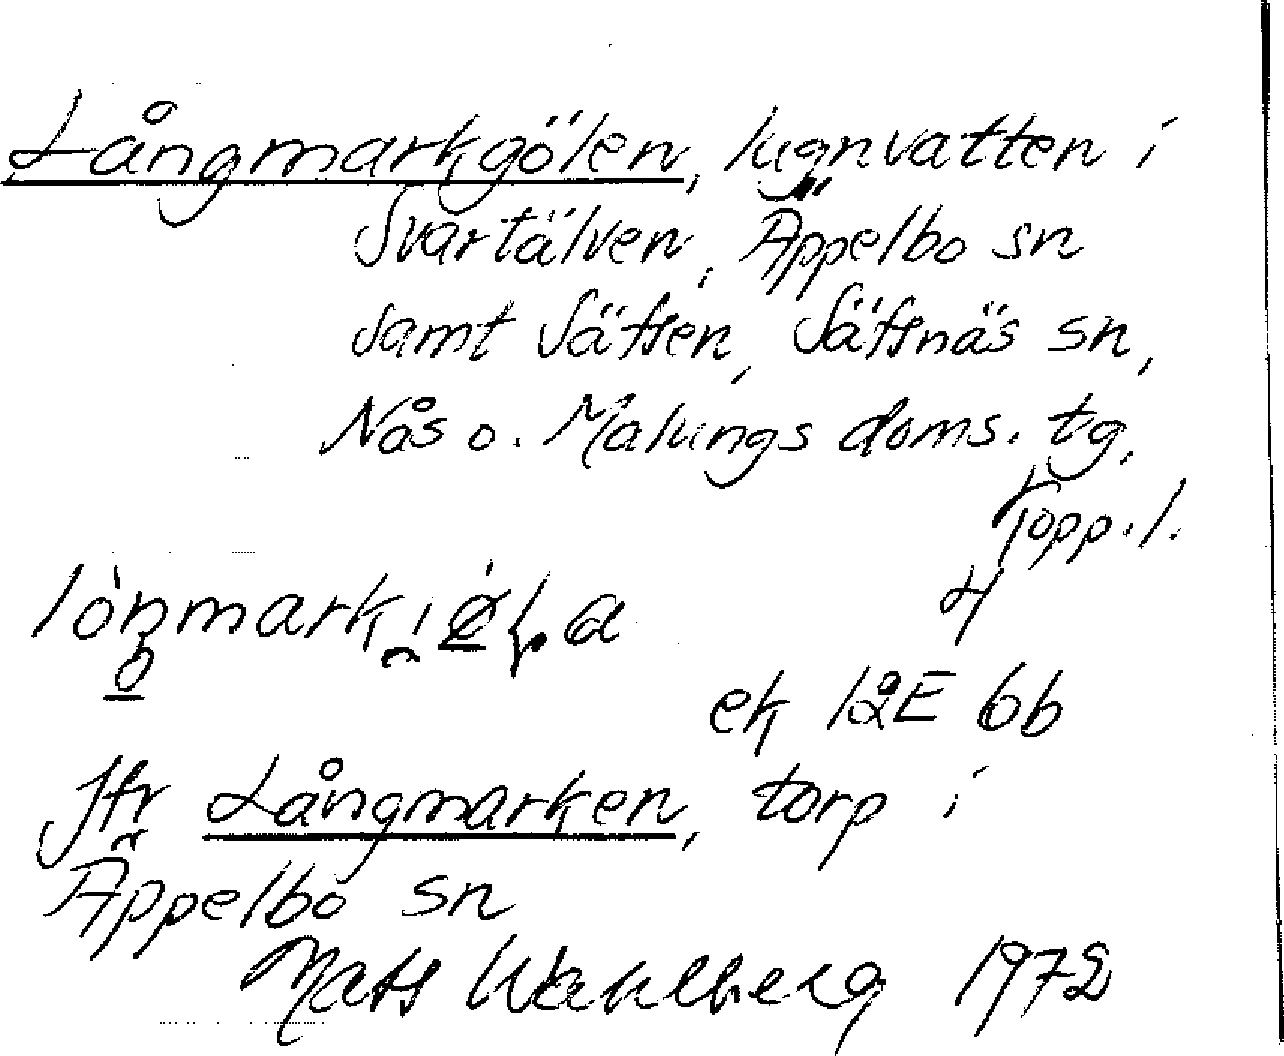 Långmarkgölen, lugnvatten i
Svartälven, Äppelbo sn
samt Sätten, Sättnäs sn,
Nås o. Malungs doms. tg,
Kopp. l.
ek 12E 6b
Jfr Långmarken, torp i
Äppelbo sn
Mats Wahlberg 1972